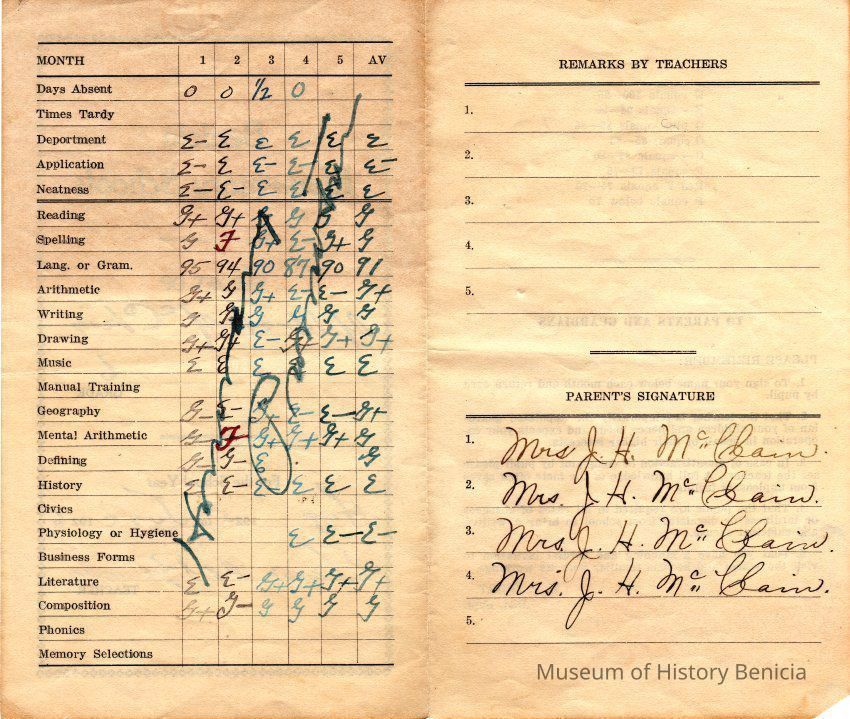 MONTH 1 2 3 4 5 AV
Days Absent 0 0 1/2 0
Times Tardy
Deportment E- E E E E E
Application E- E E- E- E E-
Neatness E- E- E E E E
Reading G+ G+ G+ G G G
Spelling G F G+ E- G+ G
Lang. or Gram. 95 94 90 87 90 91
Arithmetic G+ G G+ E- E- G+
Writing G G+ G G G G
Drawing G+ G+ E- G+ G+ G+
Music E E E E E
Manual Training
Geography G- E- G+ E- E- G+
Mental Arithmetic G- F G+ G+ G+ G
Defining G- G- E G
History E E- E- E E E
Civics
Physiology or Hygiene E E- E-
Business Forms
Literature E E- G+ G+ G+ G+
Composition G+ G- G G G G
Phonics
Memory Selections
REMARKS BY TEACHERS
1.
2.
3.
4.
5.
PARENT'S SIGNATURE
1. Mrs. J. H. McClain.
2. Mrs. J. H. McClain.
3. Mrs. J. H. McClain.
4. Mrs. J. H. McClain.
5.
Museum of History Benicia